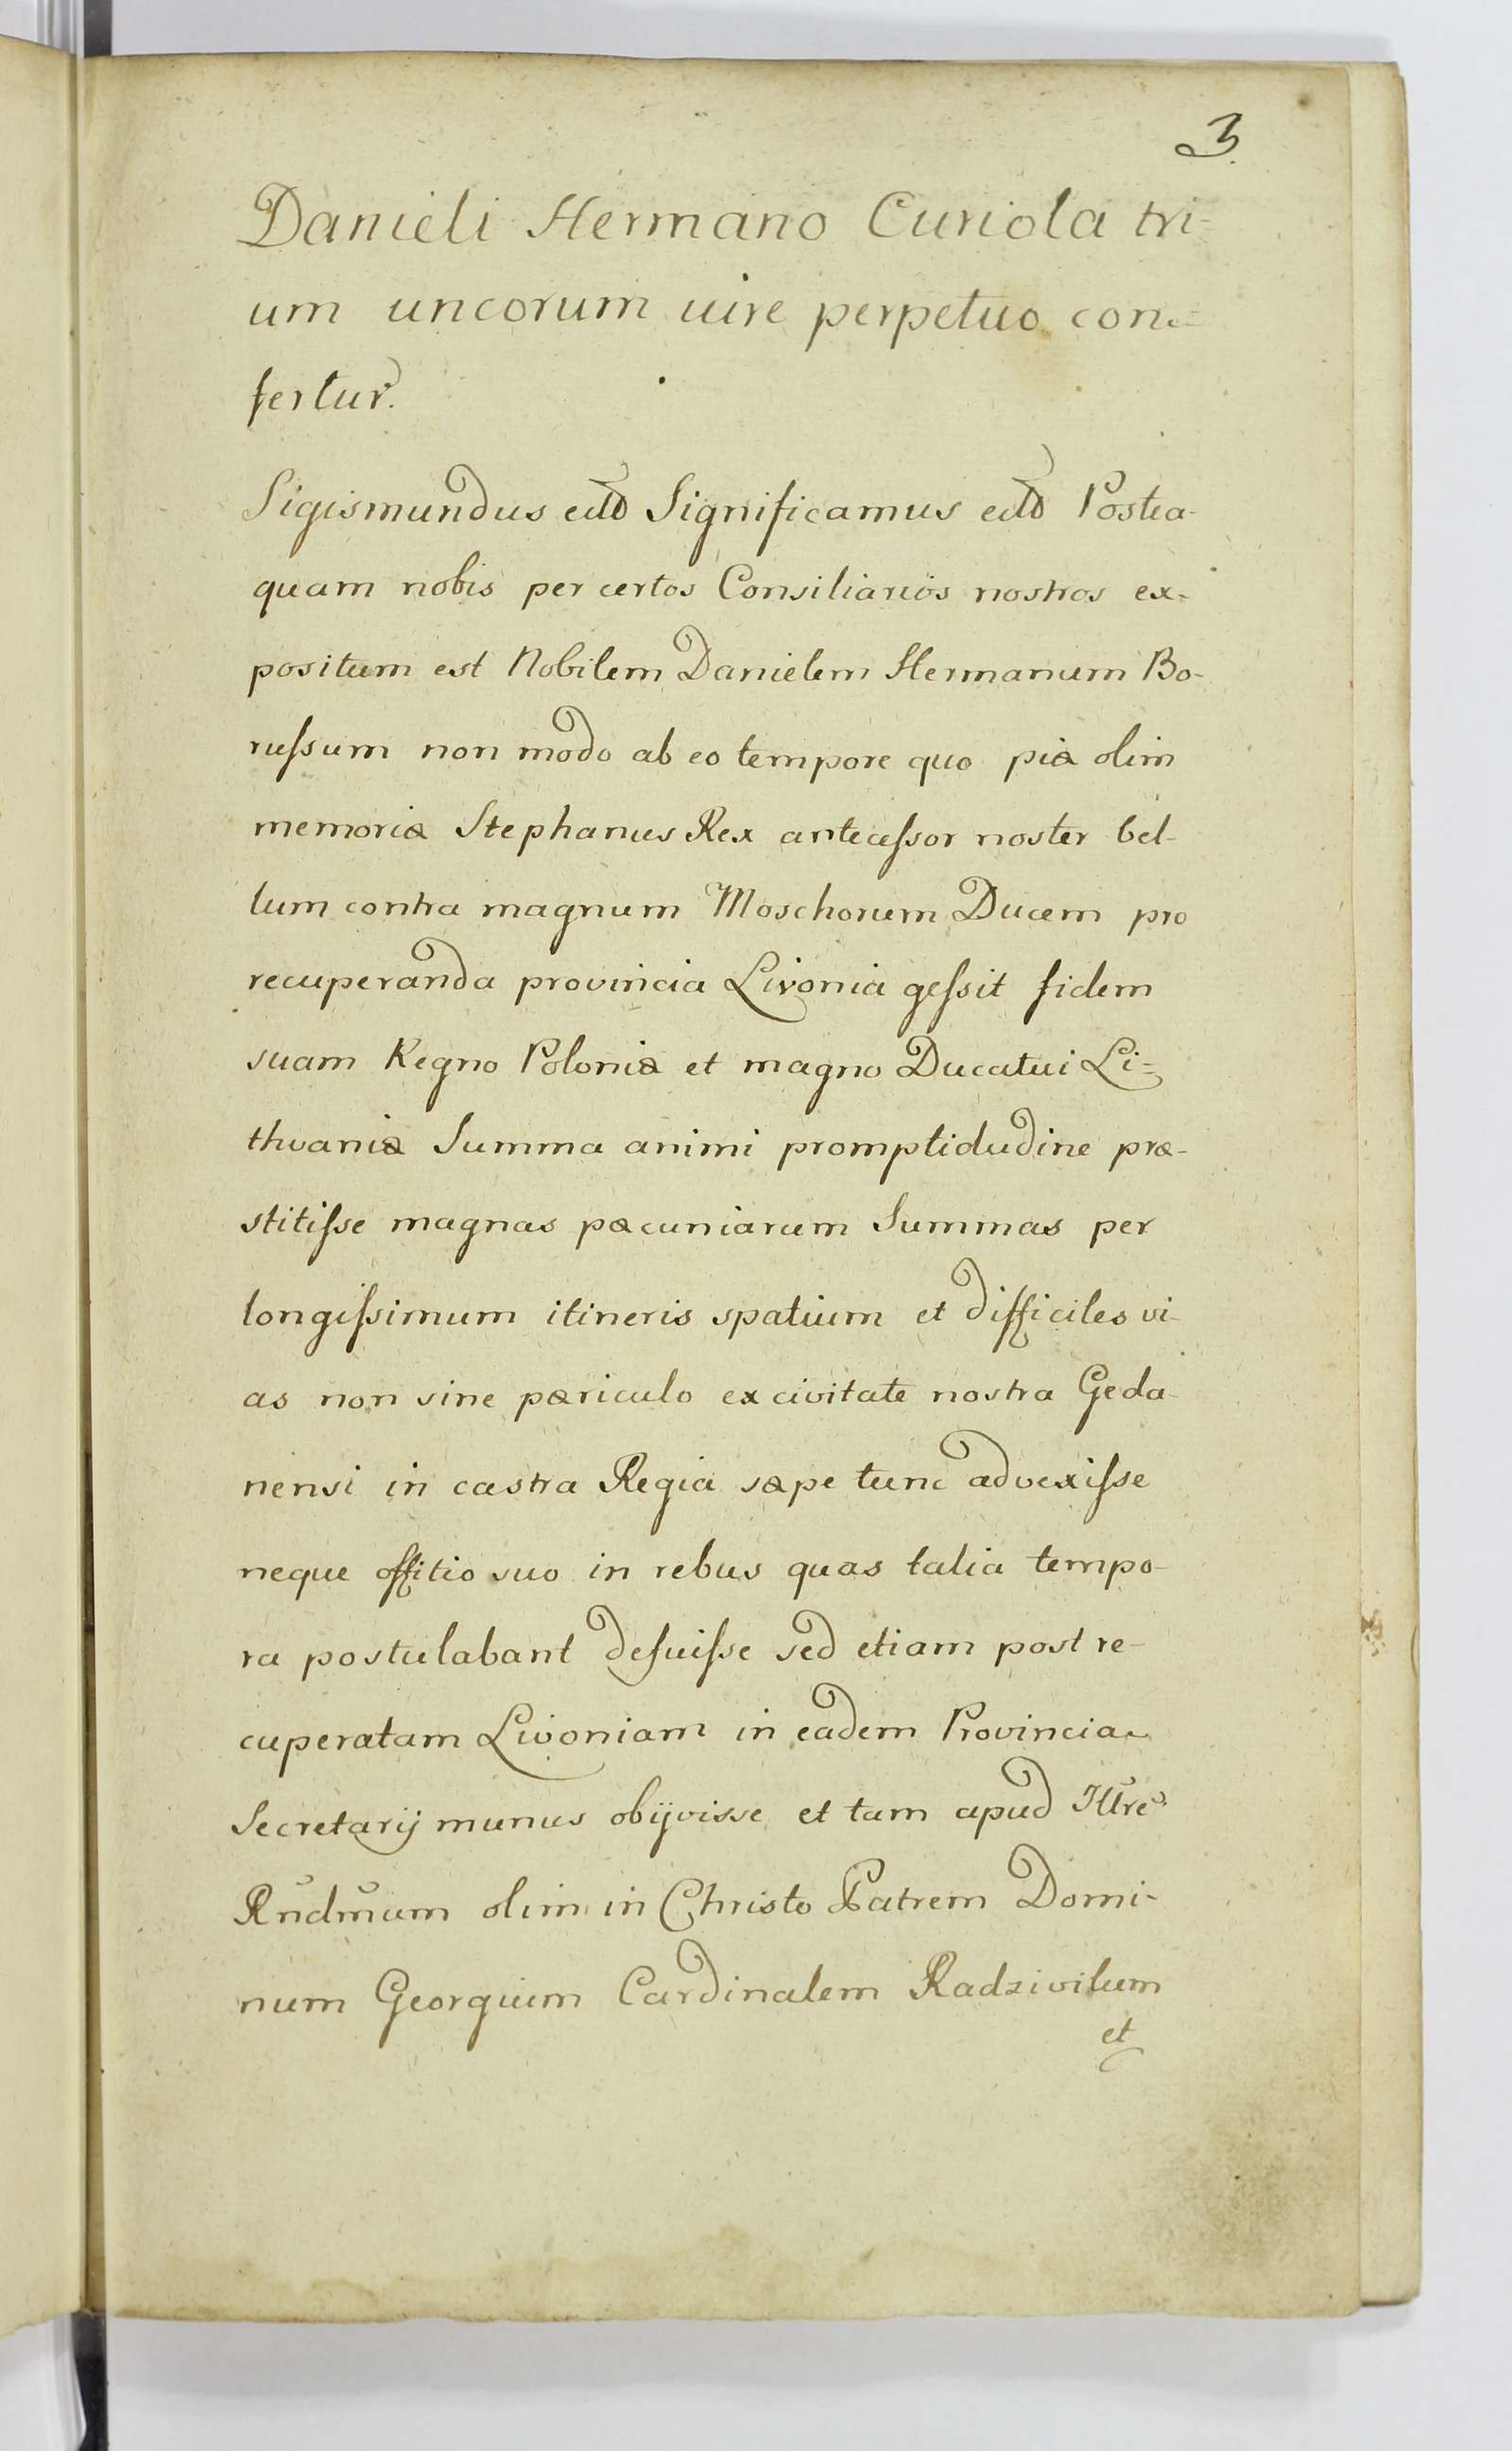 3.
Danieli Hermano Curiola tri-
um uncorum iure perpetuo con=
fertur.
Sigismundus Significamus Postea-
quam nobis per certos Consiliarios nostros ex-
positum est Nobilem Danielem Hermanum Bo-
ruſsum non modo ab eo tempore quo piæ olim
memoriæ Stephanus Rex anteceſsor noster bel-
lum contra magnum Moschorum Ducem pro
recuperanda provincia Livonia geſsit fidem
suam Regno Poloniæ et magno Ducatui Li=
thvaniæ Summa animi promptidudine præ-
stitiſse magnas pæcuniarum Summas per
longiſsimum itineris spatium et difficiles vi-
as non sine pæriculo ex civitate nostra Geda-
nensi in castra Regia sæpe tunc advexiſse
neque offitio suo in rebus quas talia tempo-
ra postulabant defuiſse sed etiam post re-
cuperatam Livoniam in eadem Provincia
Secretarij munus obijvisse et tam apud Illre
Rndmum olim in Christo Patrem Domi-
num Georgium Cardinalem Radzivilum
et